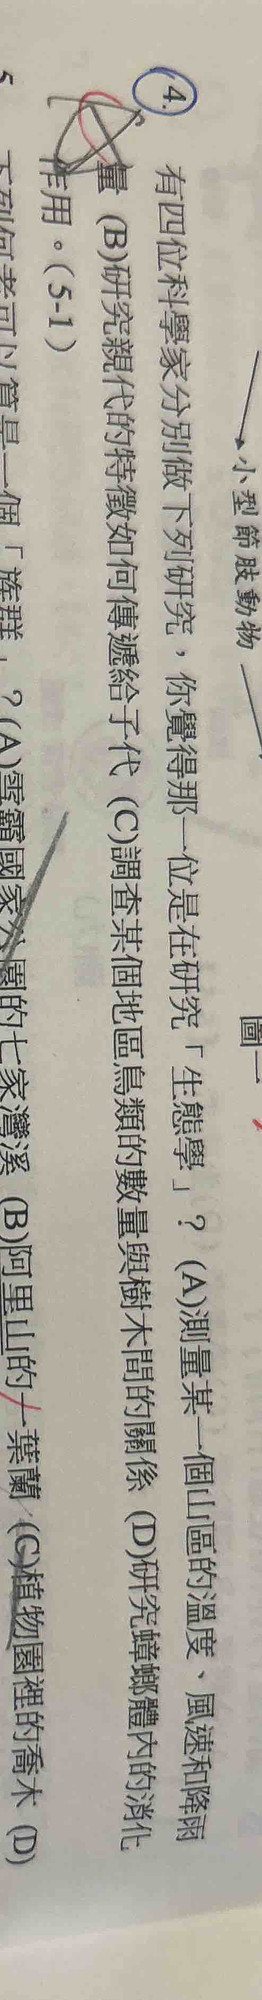 小型節肢動物
圖一
4. 有四位科學家分別做下列研究，你覺得那一位是在研究「生態學」？ (A)測量某一個山區的溫度、風速和降雨
量 (B)研究親代的特徵如何傳遞給子代 (C)調查某個地區鳥類的數量與樹木間的關係 (D)研究蟑螂體內的消化
作用。(5-1)
5 下列何者可以算是一個「族群」？(A)雪霸國家公園的七家灣溪 (B)阿里山的一葉蘭 (C)植物園裡的喬木 (D)